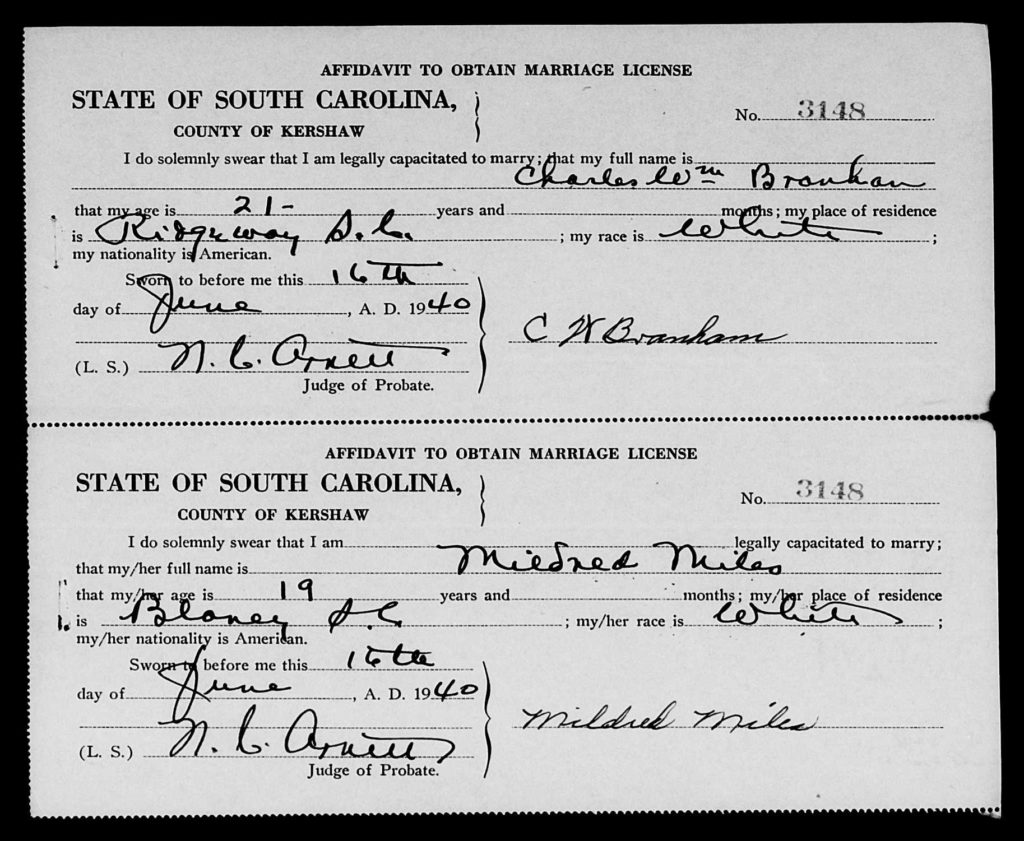 AFFIDAVIT TO OBTAIN MARRIAGE LICENSE
STATE OF SOUTH CAROLINA,
No. 3148
COUNTY OF KERSHAW
I do solemnly swear that I am legally capacitated to marry; that my full name is
Charles Wm Branham
that my age is 21- years and months; my place of residence
is Ridgeway S.C. ; my race is White ;
my nationality is American.
Sworn to before me this 16th
day of June, A. D. 1940
C W Branham
(L. S.) N. C. Arnett
Judge of Probate.
AFFIDAVIT TO OBTAIN MARRIAGE LICENSE
STATE OF SOUTH CAROLINA,
No. 3148
COUNTY OF KERSHAW
I do solemnly swear that I am legally capacitated to marry;
that my/her full name is Mildred Miles
that my/her age is 19 years and months; my/her place of residence
is Blaney S.C. ; my/her race is White ;
my/her nationality is American.
Sworn to before me this 16th
day of June, A. D. 1940
Mildred Miles
(L. S.) N. C. Arnett
Judge of Probate.